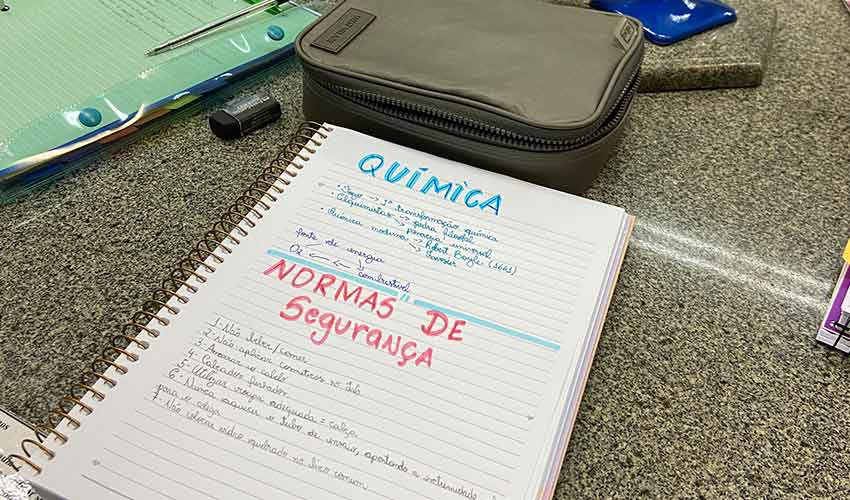 QUÍMICA
• Fogo → 1ª transformação química
• Alquimistas → pedra filosofal
→ panaceia universal
• Química moderna → Robert Boyle (1661)
→ Lavoisier
fonte de energia
O₂
combustível
NORMAS DE
Segurança
1- Não beber/comer
2- Não aplicar cosméticos no lab.
3- Amarrar o cabelo
4- Calçados fechados
5- Utilizar roupa adequada = calça
6- Nunca aqueça o tubo de ensaio, apontando a extremidade
para o colega
7- Não colocar vidro quebrado no lixo comum